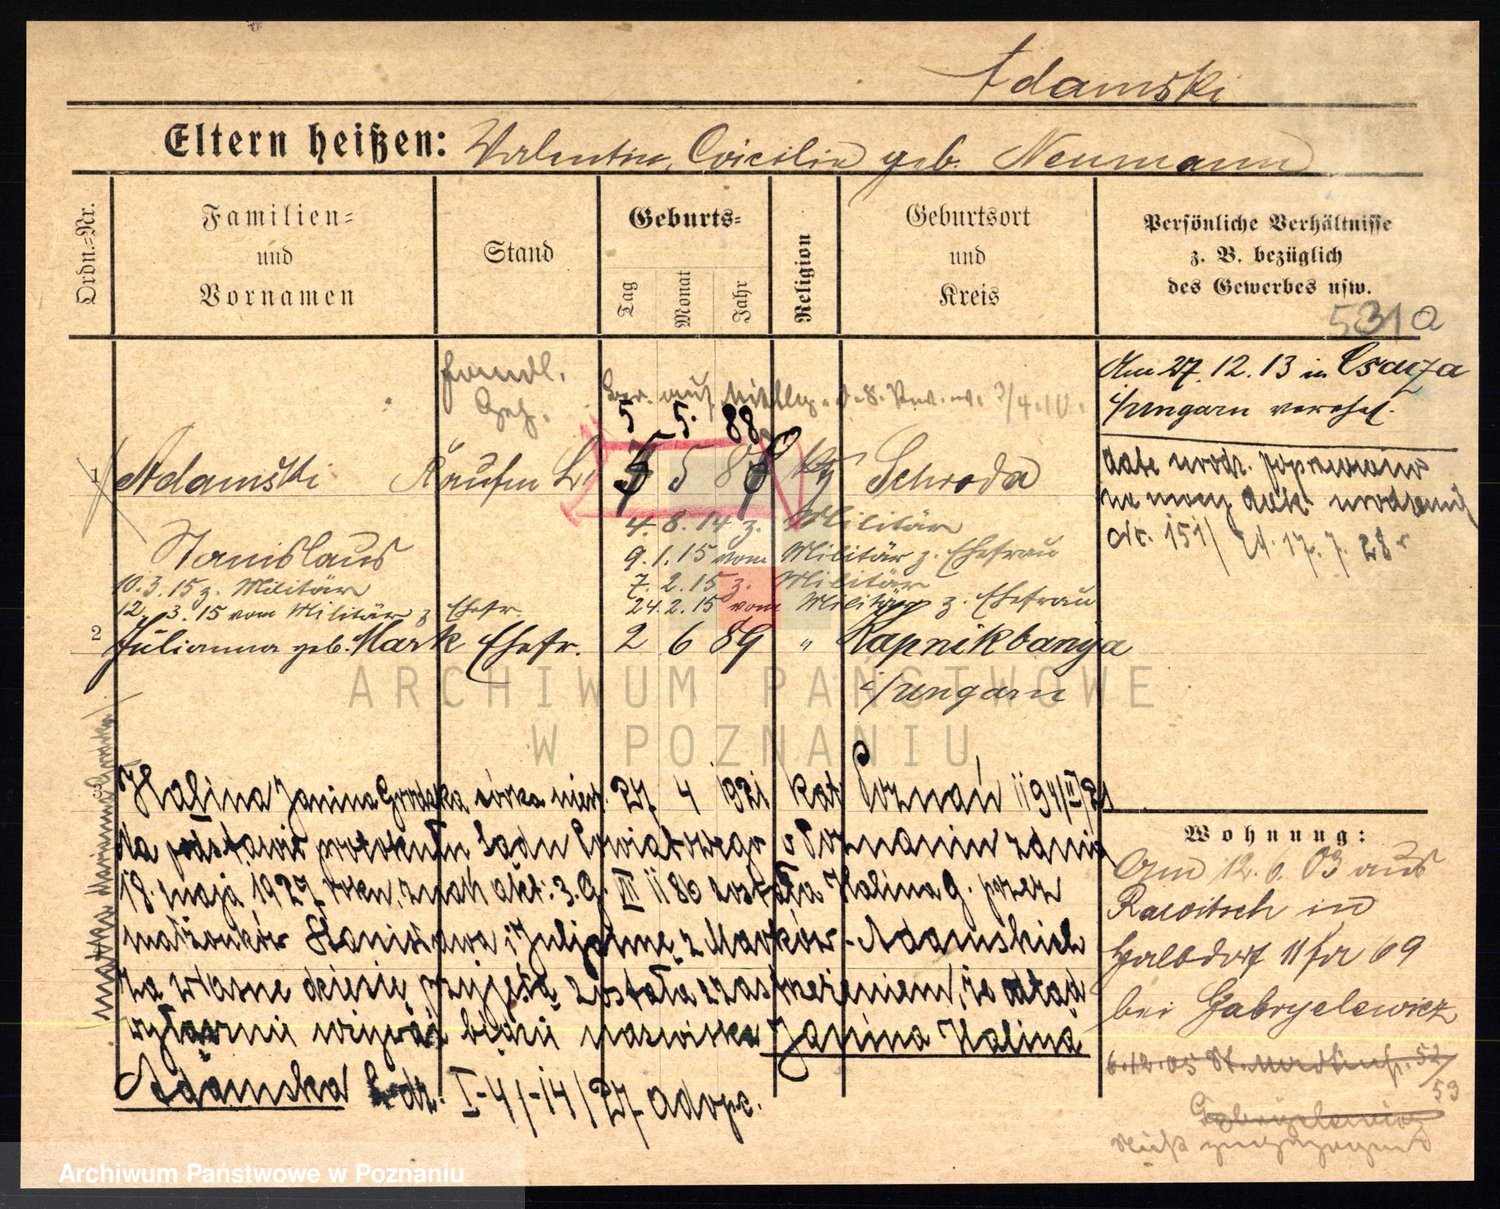 Adamski
Eltern heißen: Valentin, Cäcilia geb. Neumann
Ordn.-Nr.
Familien- und Vornamen
Stand
Geburts-
Tag Monat Jahr
Religion
Geburtsort und Kreis
Persönliche Verhältnisse
z. B. bezüglich
des Gewerbes usw.
531a
Am 27.12.13 in Csauza
i/Ungarn verehel.
5 5. 88
1 Adamski 5 5 88 Schroda
date urodz. poprawiono
na mocy akt. urodzenia
Nr. 151/ 17.7.28
Stanislaus
4.8.14 z. Militär
9.1.15 vom Militär z. Ehefrau
7.2.15 z. Militär
24.2.15 vom Militär z. Ehefrau
10.3.15 z. Militär
12.3.15 vom Militär z Ehefr.
2 Julianna geb. Mark Ehefr. 2 6 89 " Kapnikbanya
i/Ungarn
3 Halina Janina Grodzka córka nieśl. 27 4 1921 kat Poznań 1194/II/21
Na podstawie protokułu Sądu Powiatowego w Poznaniu z dnia
18. maja 1927 roku, znak akt. 3.G. III 1180 została Halina G. przez
małżonków Stanisława i Juljannę z Marków-Adamskich
za własne dziecię przyjętą została z zastrzeżeniem, że odtąd
wyłącznie winna będzie nazwiska Janina Halina
Adamska dz. I-41-14/27 adopc.
Wohnung:
Am 12.6.03 aus
Rawitsch in
Halbdorf 11 fr 69
bei Gabryelewicz
6.12.05 St. Martinstr. 52/
53
Gabryelewicz
ARCHIWUM PAŃSTWOWE
W POZNANIU
Archiwum Państwowe w Poznaniu